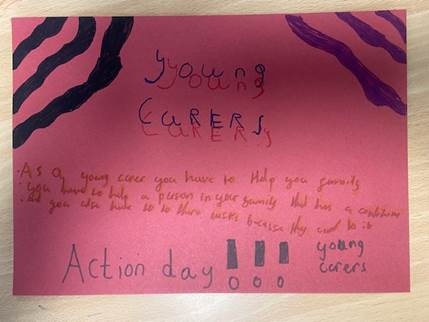 young
CARERS
• As a young carer you have to Help you family
• you have to help a person in your family that has a
and you also have to do there tasks because they to it
Action day !!! young
carers